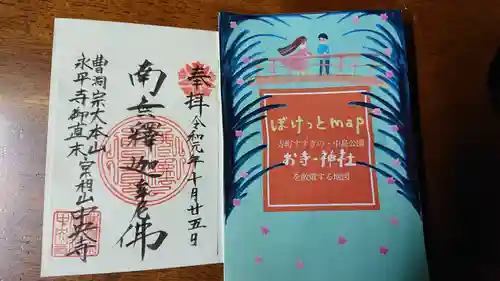 奉拝
令和元年十月廿五日
南無釋迦牟尼佛
曹洞宗大本山
永平寺御直末
宗祖山中央寺
ぽけっとmap
寺町すすきの・中島公園
お寺・神社
を散策する地図